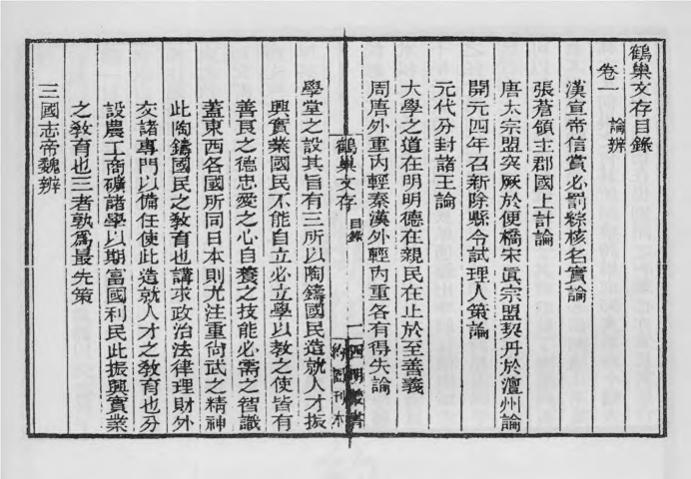 鶴巢文存目錄
卷一 論辨
漢宣帝信賞必罰綜核名實論
張蒼領主郡國上計論
唐太宗盟突厥於便橋宋眞宗盟契丹於澶州論
開元四年召新除縣令試理人策論
元代分封諸王論
大學之道在明明德在親民在止於至善義
周唐外重內輕秦漢外輕內重各有得失論
鶴巢文存 目錄 一 四明叢書 約園刊本
學堂之設其旨有三所以陶鑄國民造就人才振
興實業國民不能自立必立學以教之使皆有
善良之德忠愛之心自養之技能必需之智識
蓋東西各國所同日本則尤注重尙武之精神
此陶鑄國民之敎育也講求政治法律理財外
交諸專門以備任使此造就人才之敎育也分
設農工商礦諸學以期富國利民此振興實業
之敎育也三者孰爲最先策
三國志帝魏辨